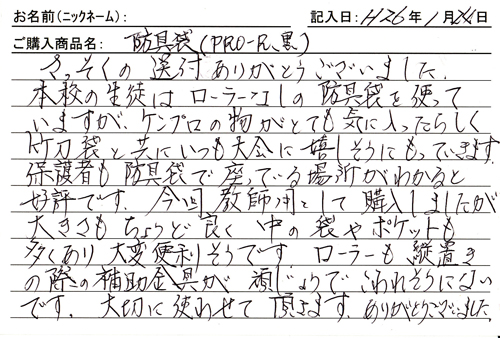 お名前(ニックネーム):　記入日:H26年1月21日
ご購入商品名: 防具袋(PRO-R,黒)
さっそくの送付ありがとうございました.
本校の生徒はローラーコシの防具袋を使って
いますが、ケンプロの物がとても気に入ったらしく
竹刀袋と共にいつも大会に嬉しそうにもっていきます.
保護者も防具袋で座っている場所がわかると
好評です. 今回教師用として購入しましたが
大きさもちょうど良く中の袋やポケットも
多くあり大変便利そうです ローラーも縦置き
の際の補助金具が頑じょうでこわれそうにない
です. 大切に使わせて頂きます. ありがとうございました.